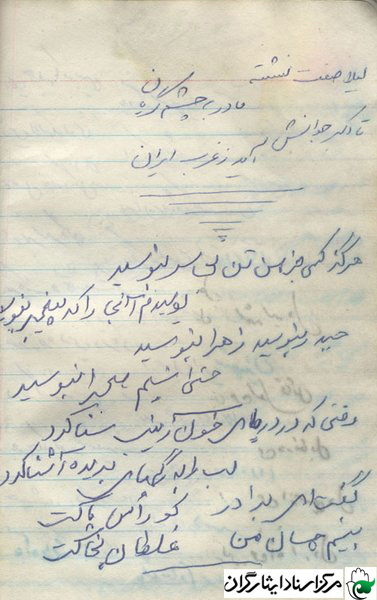 لیلا صفت نشسته
مادر به چشم گریان
تا اکبر جوانش
آید ز غرب ایران
هرگز کسی جز من تن بی سر نبوسید
بوسیدم آنجا را که پیغمبر نبوسید
حیدر نبوسید زهرا نبوسید
حتی نسیم صحرا نبوسید
وقتی که در دریای خون آرتین شنا کرد
لب را به رگهای بریده آشنا کرد
گفت ای برادر کو رأس پاکت
بینم چسان من غلطان بخاکت
مرکز اسناد ایثارگران